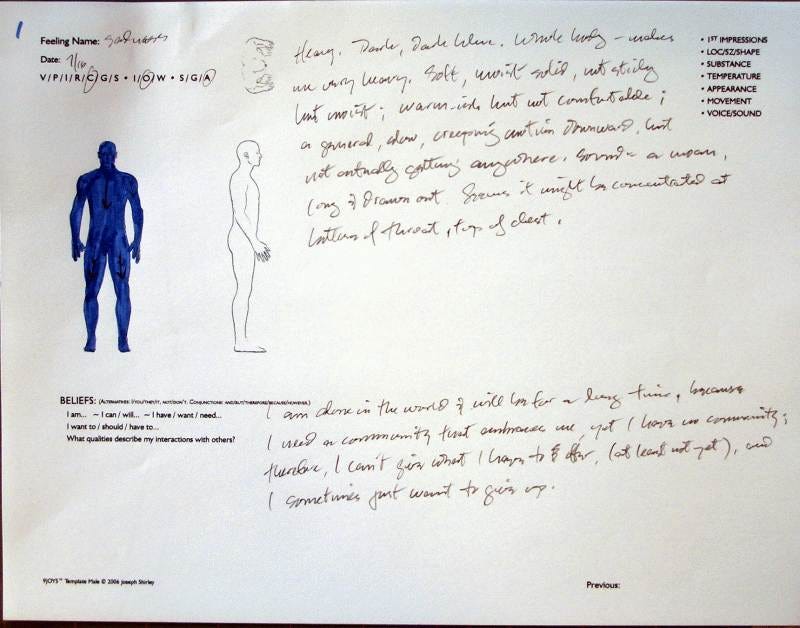 1
Feeling Name: Sadness
Date: 7/18
V/P/I/R/C/G/S • I/O/W • S/G/A
Heavy. Dark, dark blue. Whole body – makes
me very heavy. Soft, moist solid, not sticky
but moist; warm-ish but not comfortable;
a general, slow, creeping motion downward, but
not actually getting anywhere. Sound = a moan,
long & drawn out. Seems it might be concentrated at
bottom of throat, top of chest.
• 1ST IMPRESSIONS
• LOC/SZ/SHAPE
• SUBSTANCE
• TEMPERATURE
• APPEARANCE
• MOVEMENT
• VOICE/SOUND
BELIEFS: (ALTERNATIVES: I/YOU/THEY/IT, NOT/DON'T. CONJUNCTIONS: AND/BUT/THEREFORE/BECAUSE/HOWEVER.)
I am... ~ I can / will... ~ I have / want / need...
I want to / should / have to...
What qualities describe my interactions with others?
I am alone in the world & will be for a long time, because
I need a community that embraces me, yet I have no community;
therefore, I can't give what I have to offer, (at least not yet), and
I sometimes just want to give up.
9JOYS™ Template Male © 2006 Joseph Shirley
Previous: